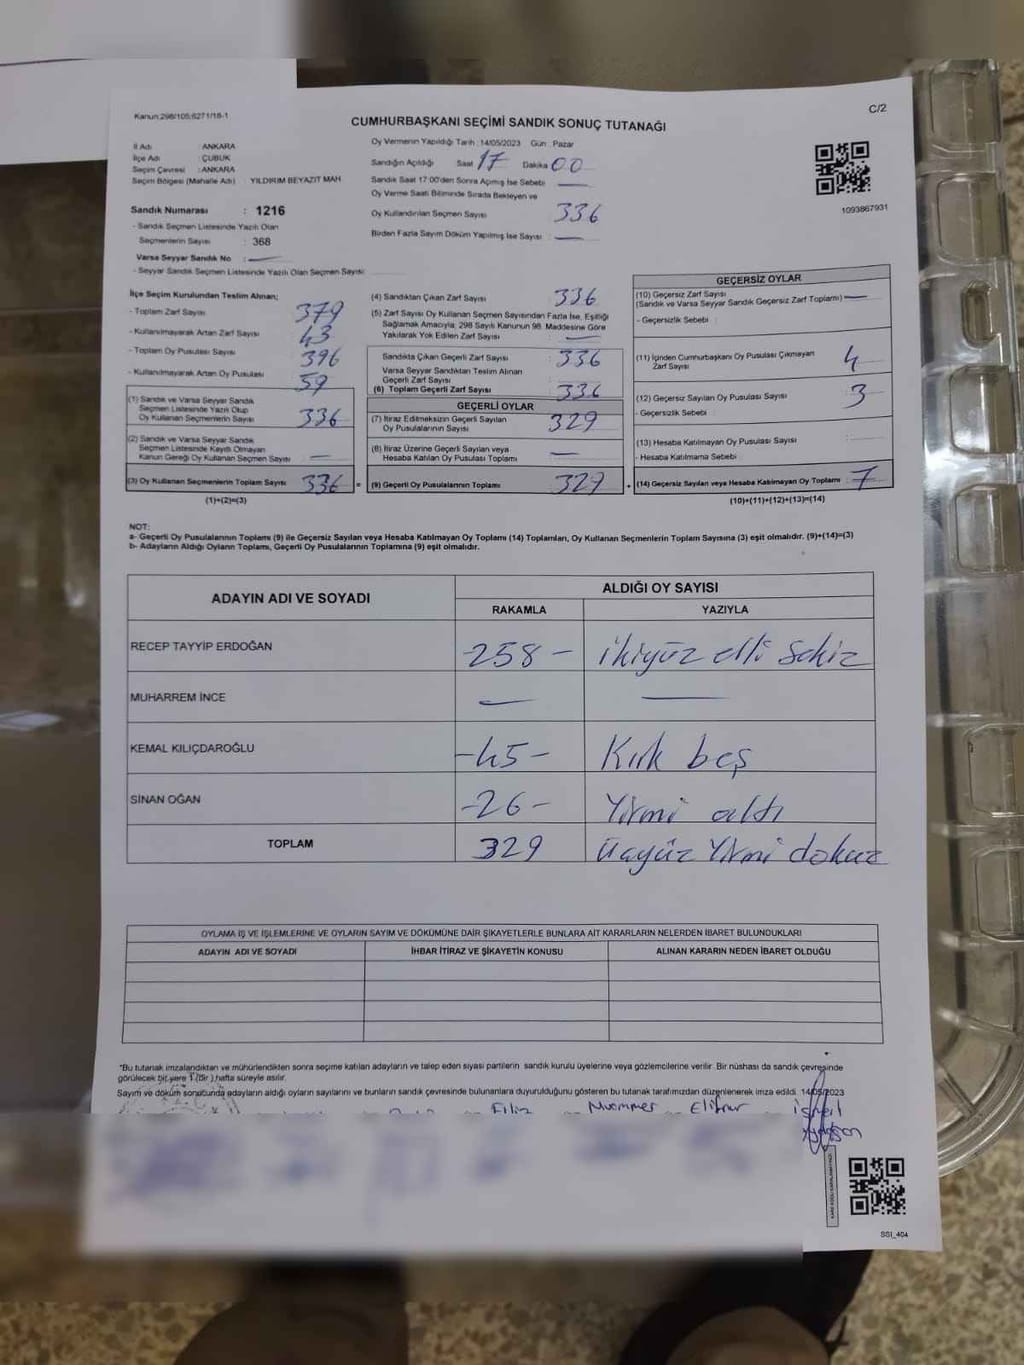 Kanun:298/105,6271/18-1
C/2
CUMHURBAŞKANI SEÇİMİ SANDIK SONUÇ TUTANAĞI
İl Adı : ANKARA
İlçe Adı : ÇUBUK
Seçim Çevresi : ANKARA
Seçim Bölgesi (Mahalle Adı) : YILDIRIM BEYAZIT MAH
Sandık Numarası : 1216
- Sandık Seçmen Listesinde Yazılı Olan
Seçmenlerin Sayısı : 368
Varsa Seyyar Sandık No : —
- Seyyar Sandık Seçmen Listesinde Yazılı Olan Seçmen Sayısı:
Oy Vermenin Yapıldığı Tarih :14/05/2023 Gün : Pazar
Sandığın Açıldığı Saat 17 Dakika 00
Sandık Saat 17:00'den Sonra Açılmış İse Sebebi : —
Oy Verme Saati Bitiminde Sırada Bekleyen ve
Oy Kullandırılan Seçmen Sayısı : 336
Birden Fazla Sayım Döküm Yapılmış İse Sayısı : —
1093867931
İlçe Seçim Kurulundan Teslim Alınan;
- Toplam Zarf Sayısı : 379
- Kullanılmayarak Artan Zarf Sayısı : 43
- Toplam Oy Pusulası Sayısı : 396
- Kullanılmayarak Artan Oy Pusulası : 59
(1) Sandık ve Varsa Seyyar Sandık
Seçmen Listesinde Yazılı Olup
Oy Kullanan Seçmenlerin Sayısı : 336
(2) Sandık ve Varsa Seyyar Sandık
Seçmen Listesinde Kayıtlı Olmayan
Kanun Gereği Oy Kullanan Seçmen Sayısı : —
(3) Oy Kullanan Seçmenlerin Toplam Sayısı : 336 =
(1)+(2)=(3)
(4) Sandıktan Çıkan Zarf Sayısı : 336
(5) Zarf Sayısı Oy Kullanan Seçmen Sayısından Fazla İse, Eşitliği
Sağlamak Amacıyla; 298 Sayılı Kanunun 98. Maddesine Göre
Yakılarak Yok Edilen Zarf Sayısı : —
Sandıkta Çıkan Geçerli Zarf Sayısı : 336
Varsa Seyyar Sandıktan Teslim Alınan
Geçerli Zarf Sayısı :
(6) Toplam Geçerli Zarf Sayısı : 336
GEÇERLİ OYLAR
(7) İtiraz Edilmeksizin Geçerli Sayılan
Oy Pusulalarının Sayısı : 329
(8) İtiraz Üzerine Geçerli Sayılan veya
Hesaba Katılan Oy Pusulası Toplamı : —
(9) Geçerli Oy Pusulalarının Toplamı : 329 +
GEÇERSİZ OYLAR
(10) Geçersiz Zarf Sayısı
(Sandık ve Varsa Seyyar Sandık Geçersiz Zarf Toplamı) : —
- Geçersizlik Sebebi :
(11) İçinden Cumhurbaşkanı Oy Pusulası Çıkmayan
Zarf Sayısı : 4
(12) Geçersiz Sayılan Oy Pusulası Sayısı : 3
- Geçersizlik Sebebi :
(13) Hesaba Katılmayan Oy Pusulası Sayısı :
- Hesaba Katılmama Sebebi :
(14) Geçersiz Sayılan veya Hesaba Katılmayan Oy Toplamı : 7
(10)+(11)+(12)+(13)=(14)
NOT:
a- Geçerli Oy Pusulalarının Toplamı (9) ile Geçersiz Sayılan veya Hesaba Katılmayan Oy Toplamı (14) Toplamları, Oy Kullanan Seçmenlerin Toplam Sayısına (3) eşit olmalıdır. (9)+(14)=(3)
b- Adayların Aldığı Oyların Toplamı, Geçerli Oy Pusulalarının Toplamına (9) eşit olmalıdır.
ADAYIN ADI VE SOYADI
ALDIĞI OY SAYISI
RAKAMLA YAZIYLA
RECEP TAYYİP ERDOĞAN -258- ikiyüz elli sekiz
MUHARREM İNCE — —
KEMAL KILIÇDAROĞLU -45- Kırk beş
SİNAN OĞAN -26- Yirmi altı
TOPLAM 329 üçyüz Yirmi dokuz
OYLAMA İŞ VE İŞLEMLERİNE VE OYLARIN SAYIM VE DÖKÜMÜNE DAİR ŞİKAYETLERLE BUNLARA AİT KARARLARIN NELERDEN İBARET BULUNDUKLARI
ADAYIN ADI VE SOYADI İHBAR İTİRAZ VE ŞİKAYETİN KONUSU ALINAN KARARIN NEDEN İBARET OLDUĞU
*Bu tutanak imzalandıktan ve mühürlendikten sonra seçime katılan adayların ve talep eden siyasi partilerin sandık kurulu üyelerine veya gözlemcilerine verilir. Bir nüshası da sandık çevresinde
görülecek bir yere 1 (bir) hafta süreyle asılır.
Sayım ve döküm sonucunda adayların aldığı oyların sayılarını ve bunların sandık çevresinde bulunanlara duyurulduğunu gösteren bu tutanak tarafımızdan düzenlenerek imza edildi. 14/05/2023
Filiz Muammer Elifnur ismail
SSI_404